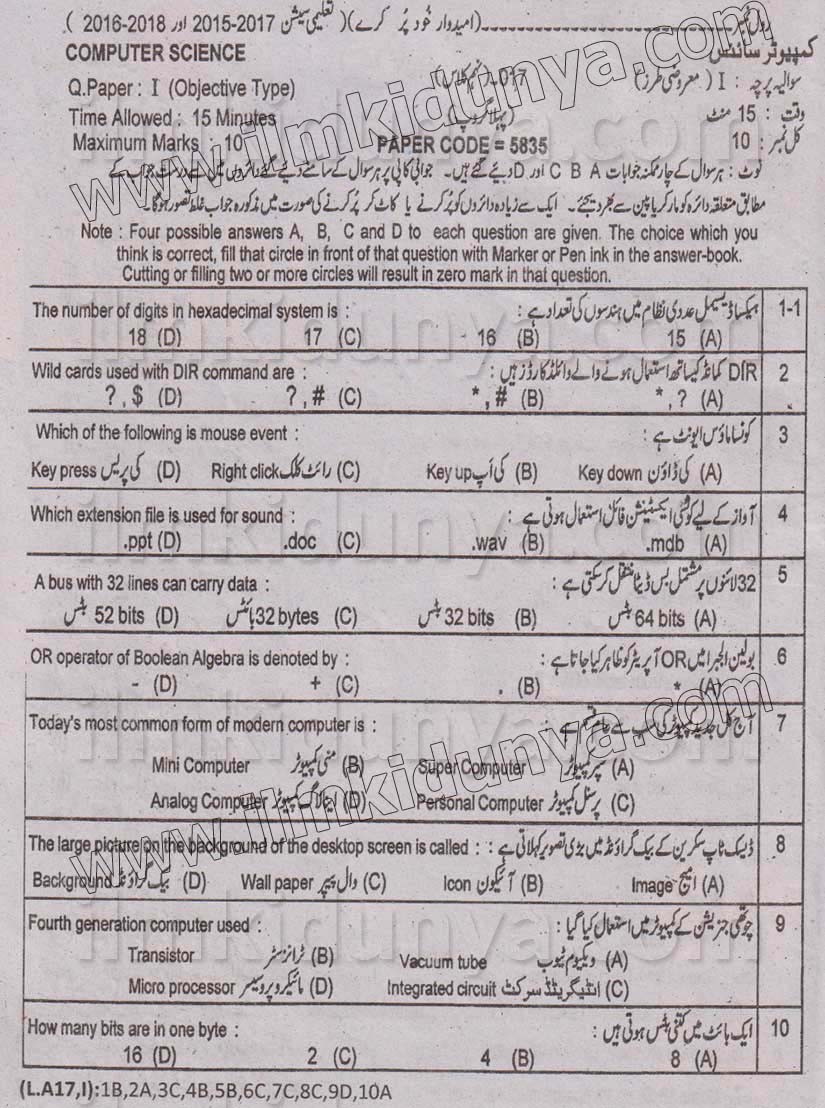 رول نمبر ـــــــــــــــ (امیدوار خود پُر کرے) ( تعلیمی سیشن 2015-2017 اور 2016-2018 )
COMPUTER SCIENCE کمپیوٹر سائنس
Q.Paper : I (Objective Type) سوالیہ پرچہ : I (معروضی طرز)
Time Allowed : 15 Minutes (پہلا گروپ) وقت : 15 منٹ
Maximum Marks : 10 PAPER CODE = 5835 کل نمبر : 10
نوٹ : ہر سوال کے چار ممکنہ جوابات A B C اور D دیئے گئے ہیں۔ جوابی کاپی پر ہر سوال کے سامنے دیئے گئے دائروں میں سے درست جواب کے
مطابق متعلقہ دائرہ کو مارکر یا پین سے بھر دیجئے۔ ایک سے زیادہ دائروں کو پُر کرنے یا کاٹ کر پُر کرنے کی صورت میں مذکورہ جواب غلط تصور ہوگا۔
Note : Four possible answers A, B, C and D to each question are given. The choice which you
think is correct, fill that circle in front of that question with Marker or Pen ink in the answer-book.
Cutting or filling two or more circles will result in zero mark in that question.
The number of digits in hexadecimal system is : ہیکسا ڈیسیمل عددی نظام میں ہندسوں کی تعداد ہے : 1-1
18 (D) 17 (C) 16 (B) 15 (A)
Wild cards used with DIR command are : DIR کمانڈ کیساتھ استعمال ہونے والے وائلڈ کارڈز ہیں : 2
? , $ (D) ? , # (C) * , # (B) * , ? (A)
Which of the following is mouse event : کونسا ماؤس ایونٹ ہے : 3
Key press کی پریس (D) Right click رائٹ کلک (C) Key up کی اَپ (B) Key down کی ڈاؤن (A)
Which extension file is used for sound : آواز کے لیے کونسی ایکسٹینشن فائل استعمال ہوتی ہے : 4
.ppt (D) .doc (C) .wav (B) .mdb (A)
A bus with 32 lines can carry data : 32 لائنوں پر مشتمل بس ڈیٹا منتقل کر سکتی ہے : 5
52 bits بٹس (D) 32 bytes بائٹس (C) 32 bits بٹس (B) 64 bits بٹس (A)
OR operator of Boolean Algebra is denoted by : بولین الجبرا میں OR آپریٹر کو ظاہر کیا جاتا ہے : 6
- (D) + (C) . (B) * (A)
Today's most common form of modern computer is : آج کل جدید کمپیوٹر کی سب سے عام قسم ہے : 7
Mini Computer منی کمپیوٹر (B) Super Computer سپر کمپیوٹر (A)
Analog Computer اینالاگ کمپیوٹر (D) Personal Computer پرسنل کمپیوٹر (C)
The large picture on the background of the desktop screen is called : ڈیسک ٹاپ سکرین کے بیک گراؤنڈ میں بڑی تصویر کہلاتی ہے : 8
Background بیک گراؤنڈ (D) Wall paper وال پیپر (C) Icon آئیکون (B) Image امیج (A)
Fourth generation computer used : چوتھی جنریشن کے کمپیوٹر میں استعمال کیا گیا : 9
Transistor ٹرانزسٹر (B) Vacuum tube ویکیوم ٹیوب (A)
Micro processor مائیکرو پروسیسر (D) Integrated circuit انٹیگریٹڈ سرکٹ (C)
How many bits are in one byte : ایک بائٹ میں کتنی بٹس ہوتی ہیں : 10
16 (D) 2 (C) 4 (B) 8 (A)
(L.A17,I):1B,2A,3C,4B,5B,6C,7C,8C,9D,10A
www.ilmkidunya.com
www.ilmkidunya.com